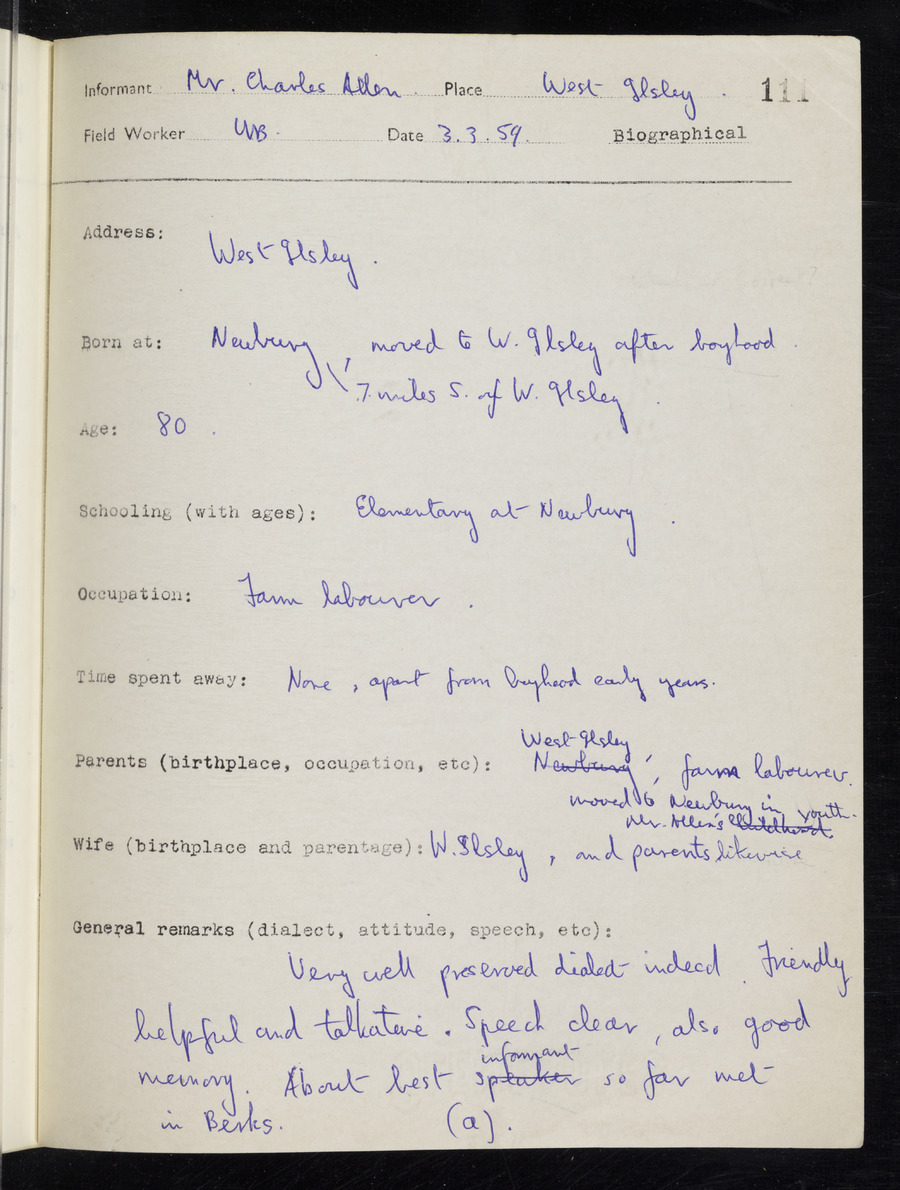 Informant Mr. Charles Allen. Place West Ilsley. 111
Field Worker WB. Date 3.3.59. Biographical
Address:
West Ilsley.
Born at: Newbury, moved to W. Ilsley after boyhood.
7 miles S. of W. Ilsley.
Age: 80.
Schooling (with ages): Elementary at Newbury.
Occupation: Farm labourer.
Time spent away: None, apart from boyhood early years.
West Ilsley
Parents (birthplace, occupation, etc): Newbury, farm labourer.
moved to Newbury in youth.
Mr. Allen's childhood.
Wife (birthplace and parentage): W. Ilsley, and parents likewise
General remarks (dialect, attitude, speech, etc):
Very well preserved dialect indeed. Friendly
helpful and talkative. Speech clear, also good
informant
memory. About best speaker so far met
in Berks. (a).